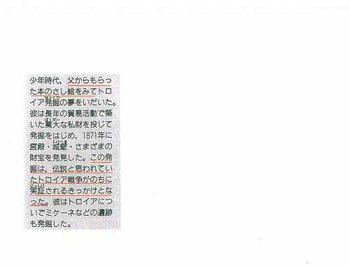 少年時代，父からもらっ
た本のさし絵をみてトロ
イア発掘の夢をいだいた。
彼は長年の貿易活動で築
いた莫大な私財を投じて
発掘をはじめ，1871年に
宮殿・城壁・さまざまの
財宝を発見した。この発
掘は，伝説と思われてい
たトロイア戦争がのちに
実証されるきっかけとな
った。彼はトロイアにつ
いでミケーネなどの遺跡
も発掘した。